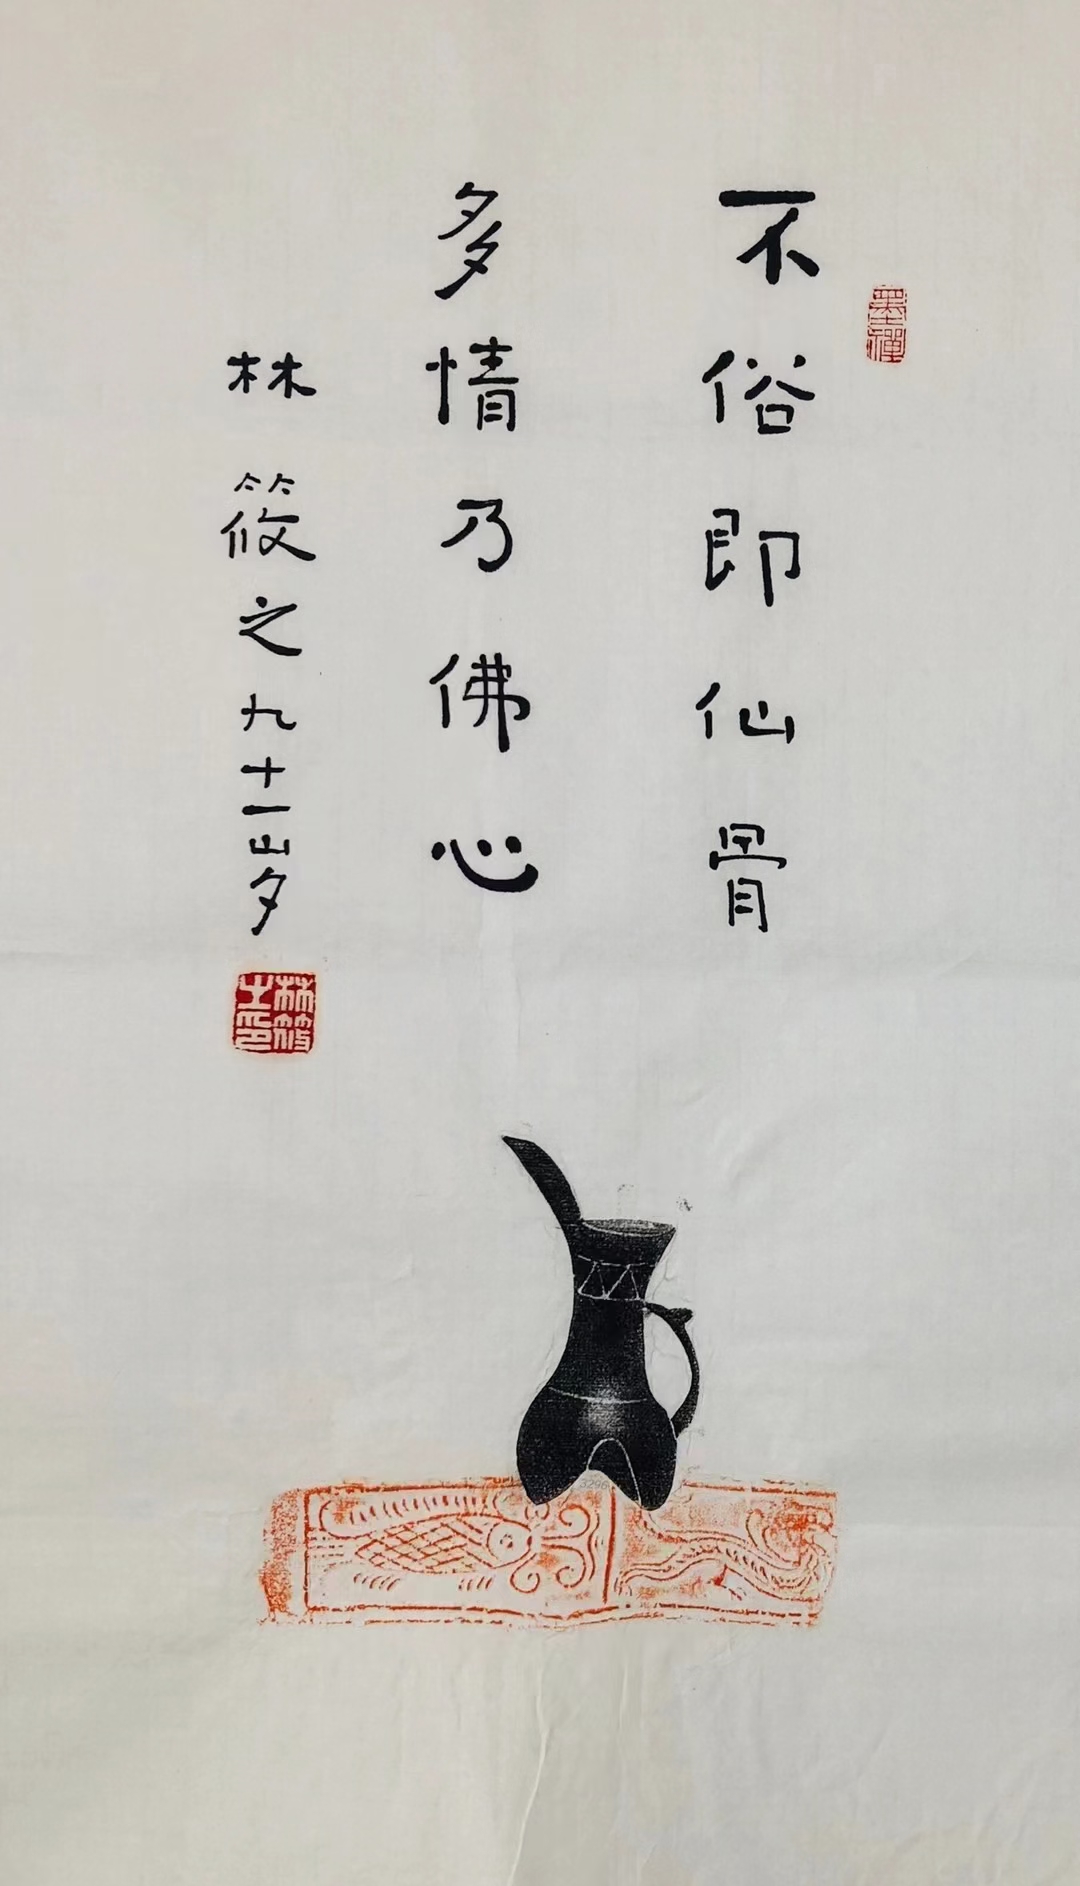 不俗即仙骨
多情乃佛心
林筱之九十一岁
墨禪
林筱之印